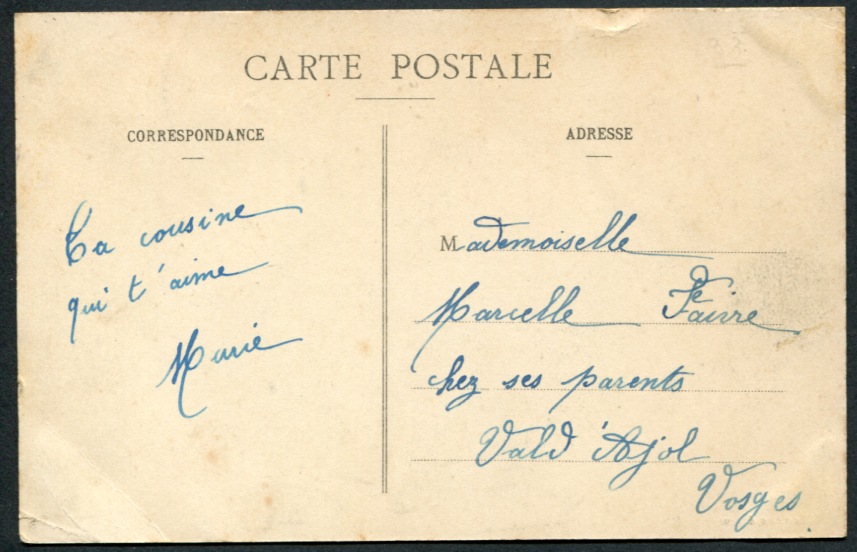 CARTE POSTALE
CORRESPONDANCE
ADRESSE
Ta cousine
qui t'aime
Marie
Mademoiselle
Marcelle Faivre
chez ses parents
Val d'Ajol
Vosges